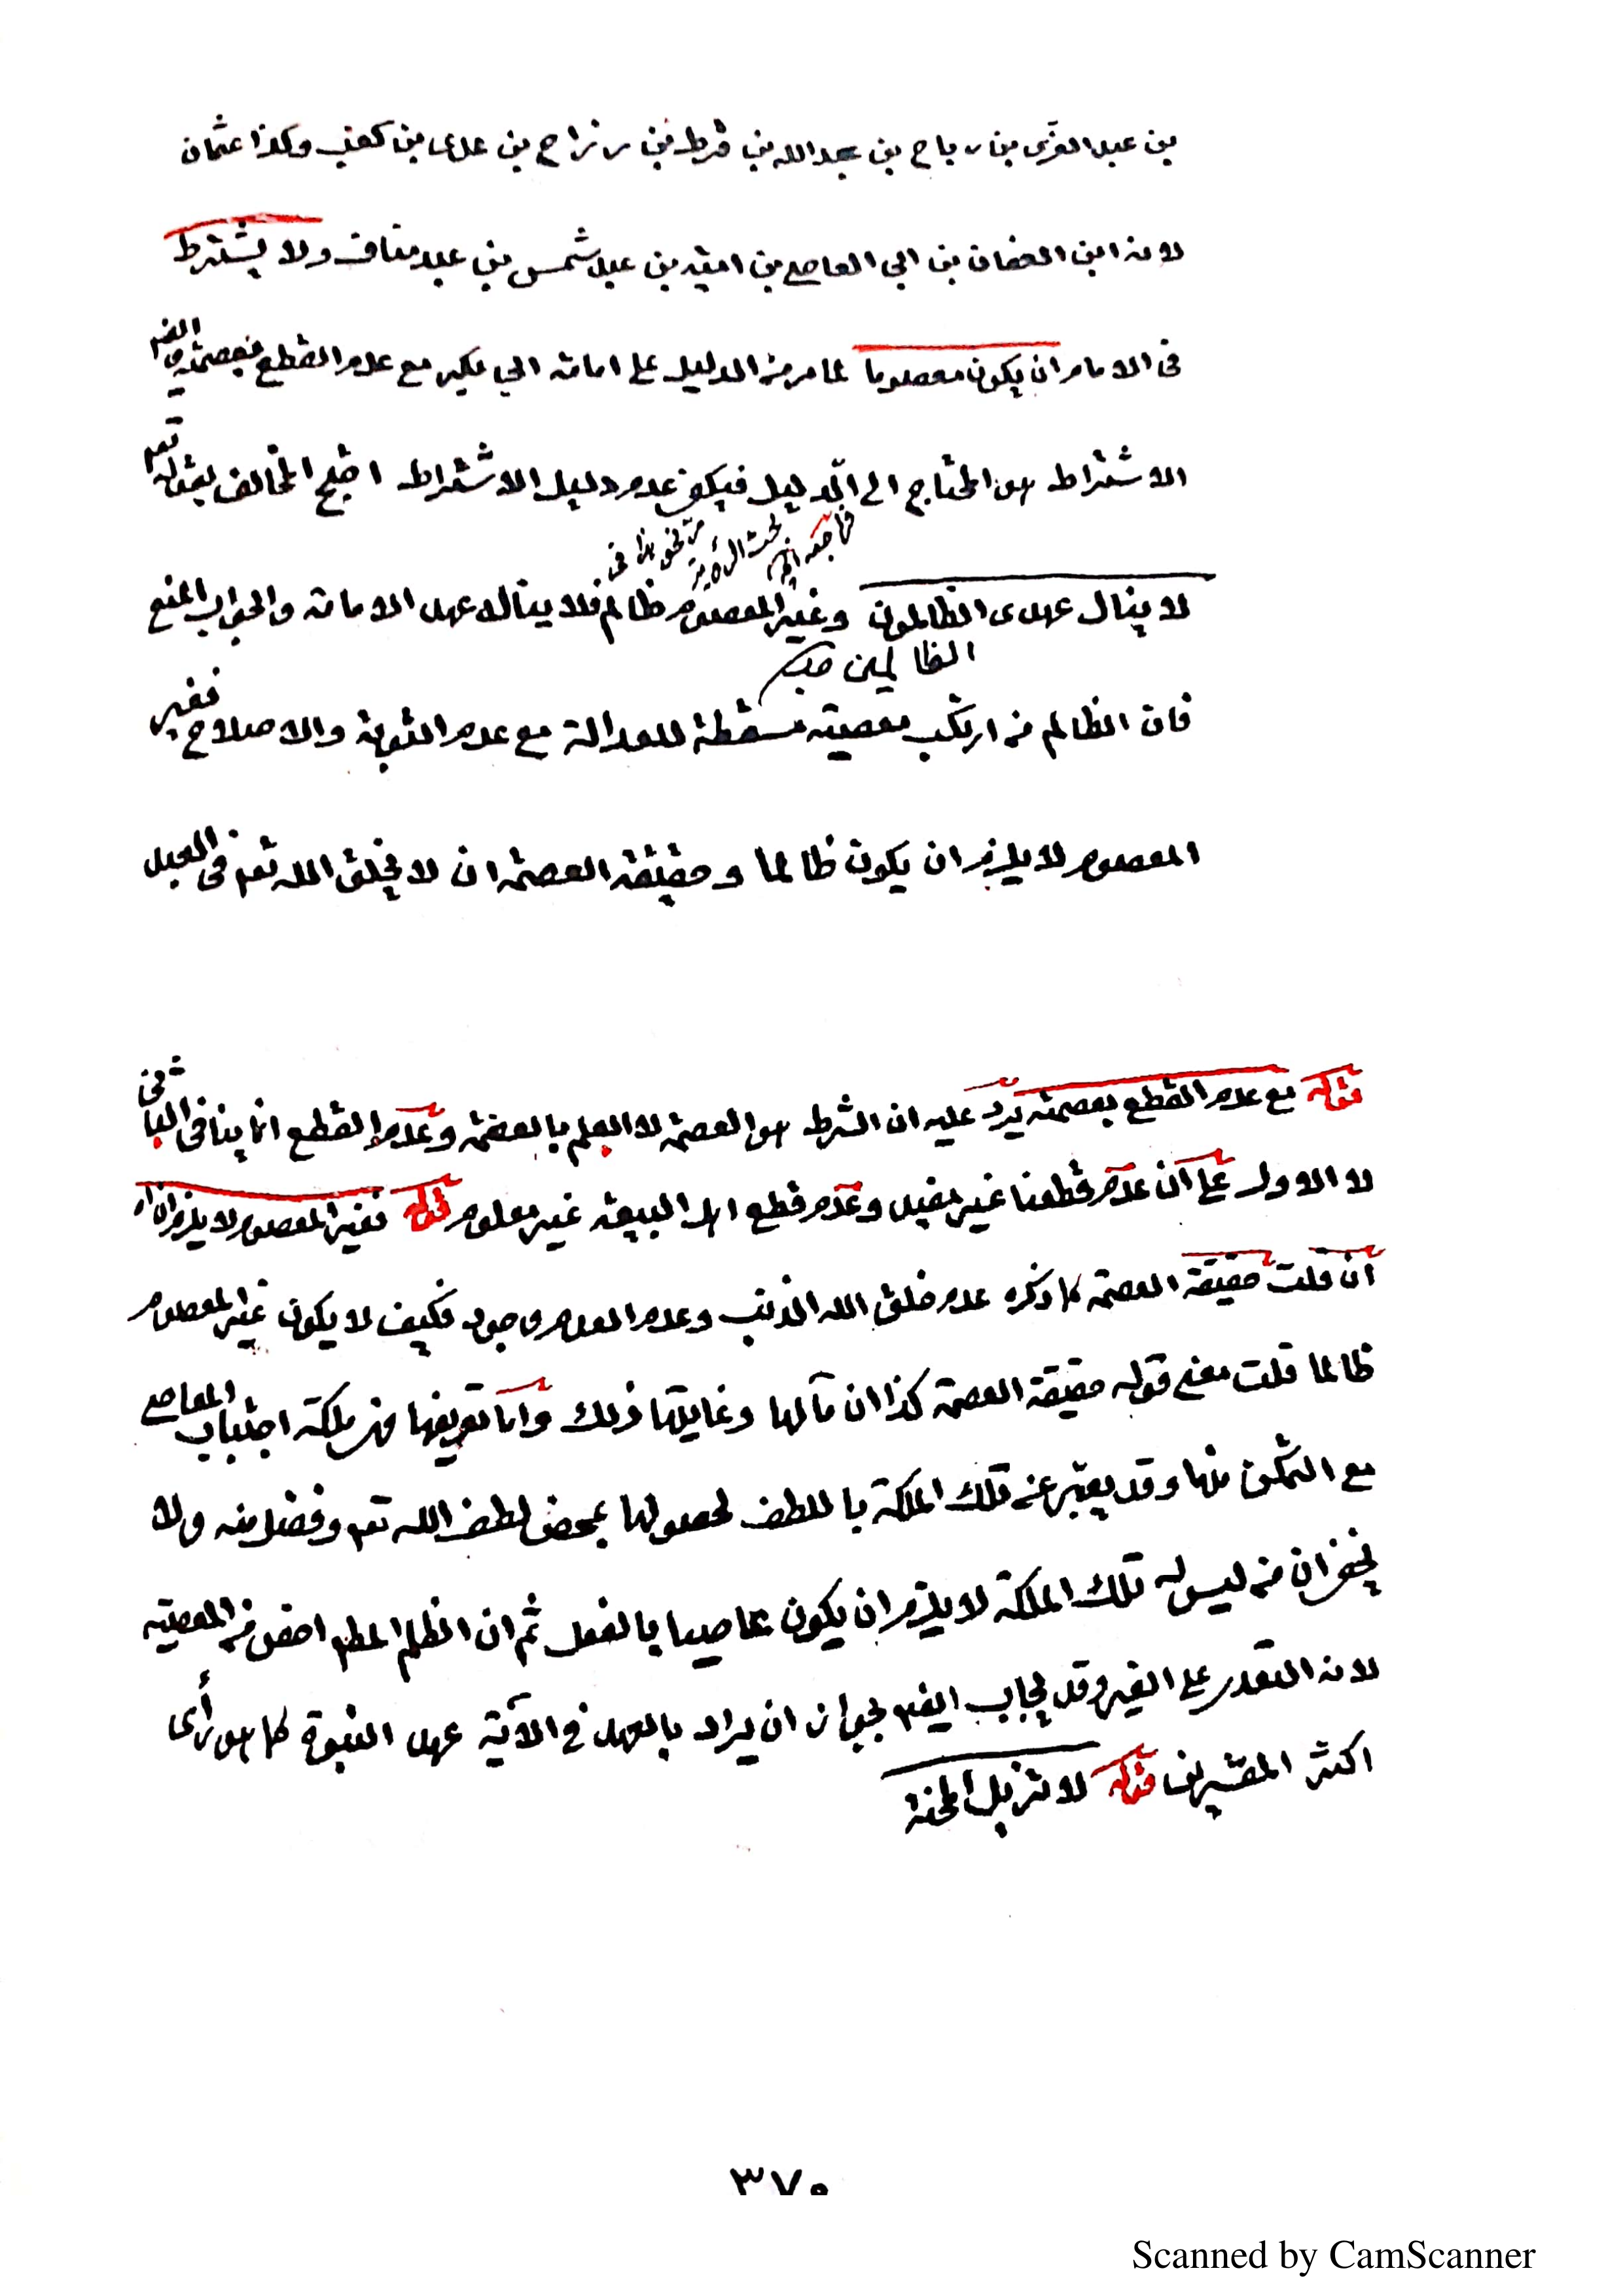 بن عبد العزى بن رباح بن عبد الله بن قرط بن رزاح بن عدى بن كعب وكذا عثمان
لانه ابن العفان بن ابى العاص بن امية بن عبد شمس بن عبد مناف ولا يشترط
فى الامام ان يكون معصوما لما مر من الدليل على امامة ابى بكر مع عدم القطع بعصمته وايضا
الاشتراط هو المحتاج الى الدليل فيكفى عدم دليل الاشتراط احتج المخالف بقوله تعم
مر نحو هذا فى بحث الرؤية فراجعه
لا ينال عهدى الظالمون وغير المعصوم ظالم فلا يناله عهد الامامة والجواب المنع
الظالمين
فان الظالم من ارتكب معصية مسقطة للعدالة مع عدم التوبة والاصلاح فغير
المعصوم لا يلزم ان يكون ظالما وحقيقة العصمة ان لا يخلق الله تعم فى العبد
قوله مع عدم القطع بعصمته يرد عليه ان الشرط هو العصمة لا العلم بالعصمة وعدم القطع انما ينافى الثانى
لا الاول على ان عدم قطعنا غير مفيد وعدم قطع اهل البيعة غير معلوم قوله فغير المعصوم لا يلزم ان اه
ان قلت حقيقة العصمة كما ذكره عدم خلق الله الذنب وعدم العدم وجود فكيف لا يكون غير المعصوم
ظالما قلت معنى قوله حقيقة العصمة كذا ان مآلها وغايتها ذلك واما تعريفها فهى ملكة اجتناب المعاصى
مع التمكن منها وقد يعبر عن تلك الملكة باللطف لحصولها بمحض لطف الله تعم وفضل منه ولا
يخفى ان من ليس له تلك الملكة لا يلزم ان يكون عاصيا بالفعل ثم ان الظلم المطلم اخص من المعصية
لانه التعدى على الغير وقد يجاب ايضم بجواز ان يراد بالعهد فى الآية عهد النبوة كما هو رأى
اكثر المفسرين قوله لا تزيل المحنة
٣٧٠
Scanned by CamScanner